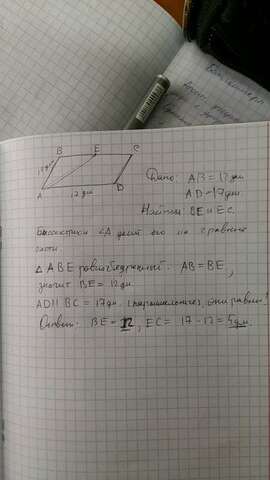 B E C
A 12 дм D
Дано: AB = 12 дм
AD = 17 дм
Найти: BE и EC.
Биссектриса ∠A делит его на 2 равные
части.
△ ABE равнобедренный: AB = BE,
значит BE = 12 дм.
AD || BC = 17 дм. (параллелограмм, они равны)
Ответ: BE = 12, EC = 17 - 12 = 5 дм.